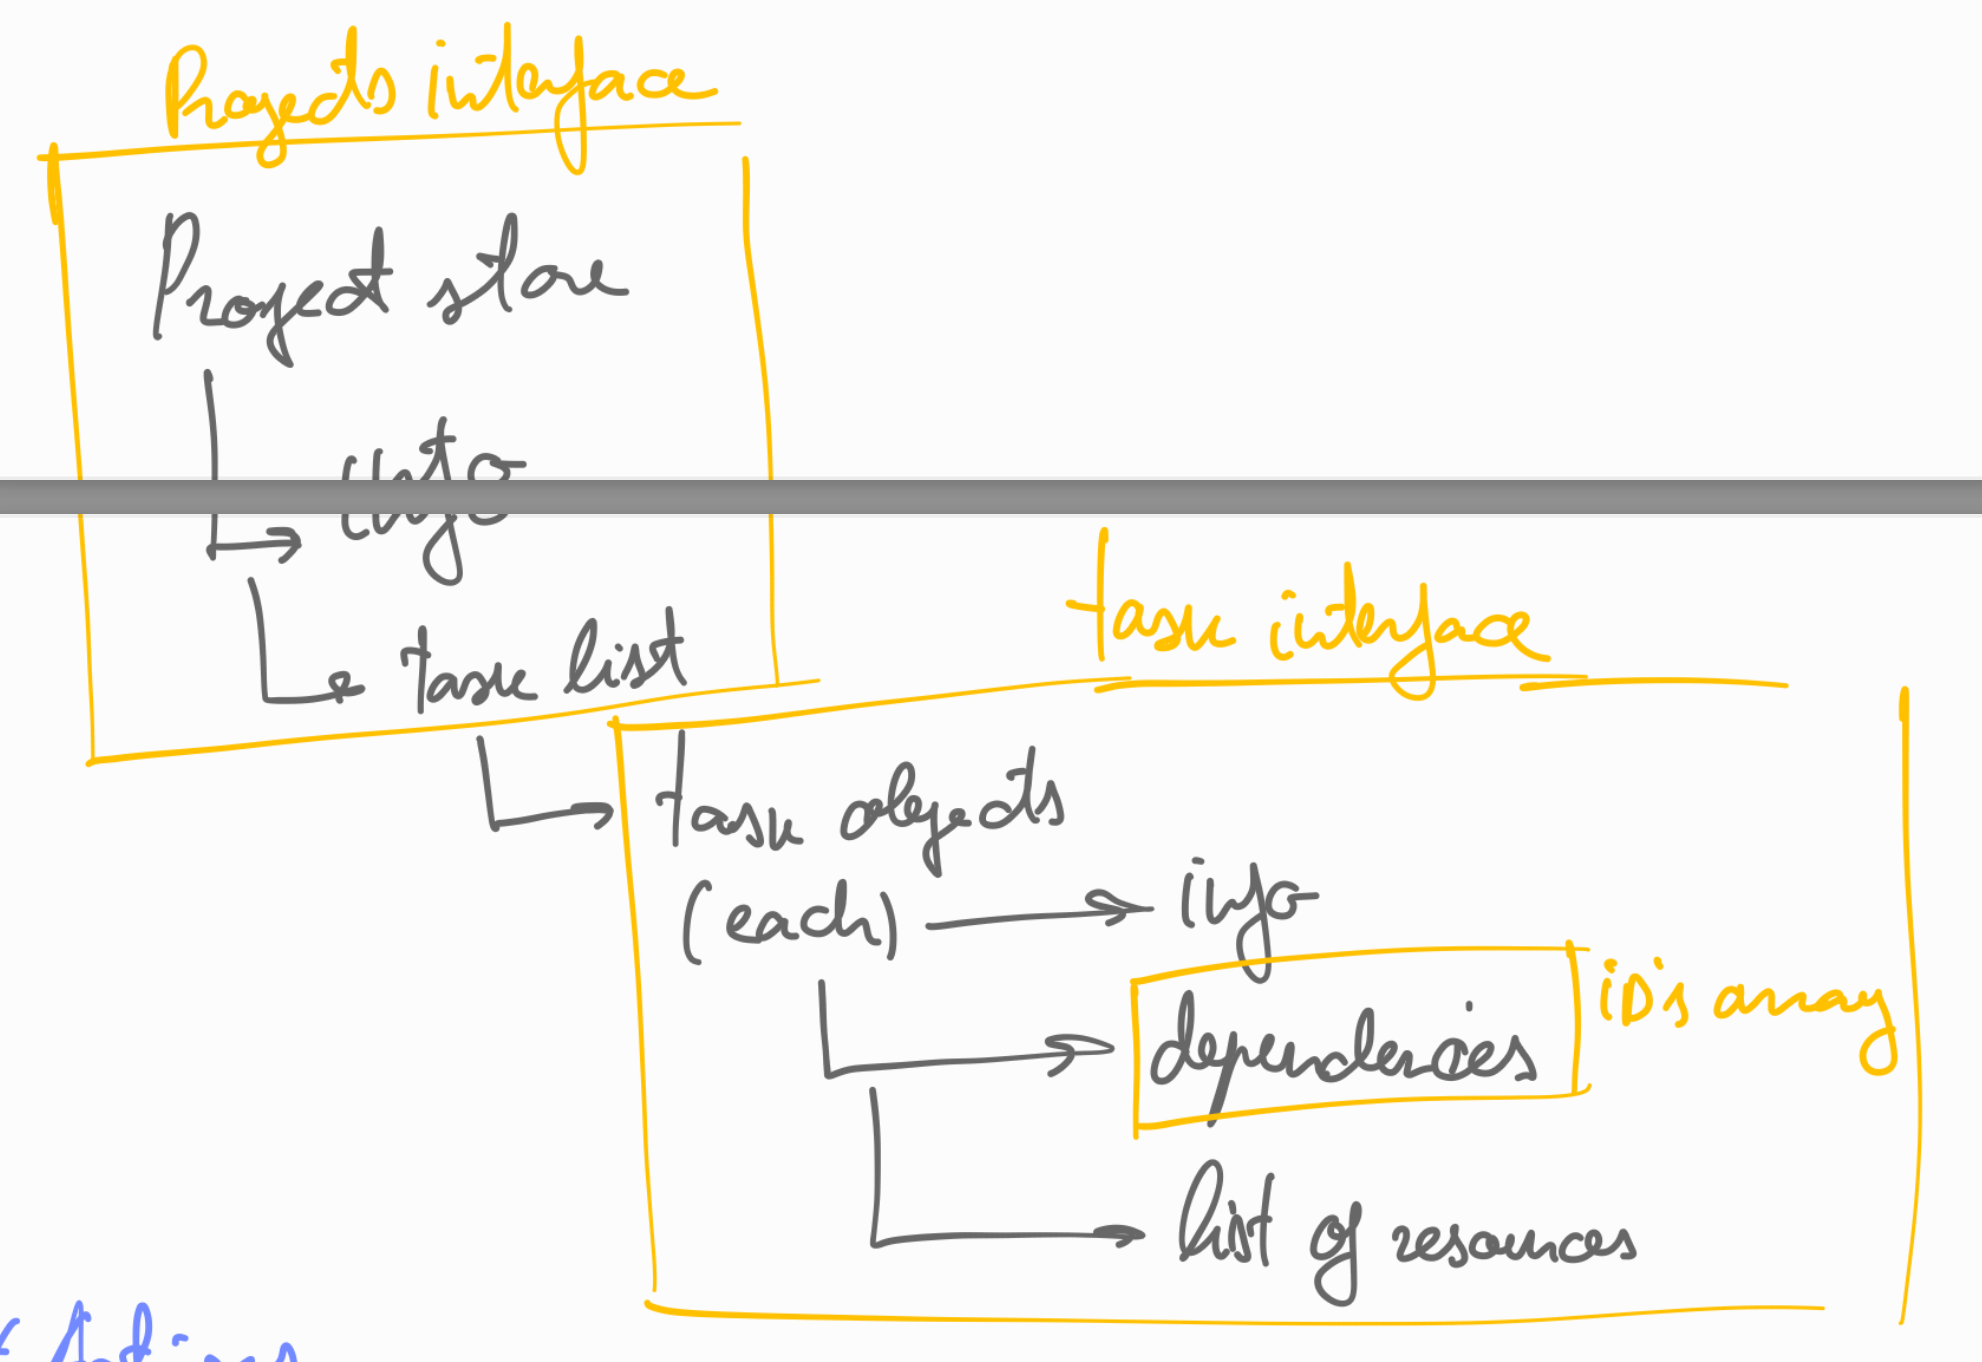 Projects interface
Project store
info
Task list
Task interface
Task objects
(each)
info
dependencies
iD's array
list of resources